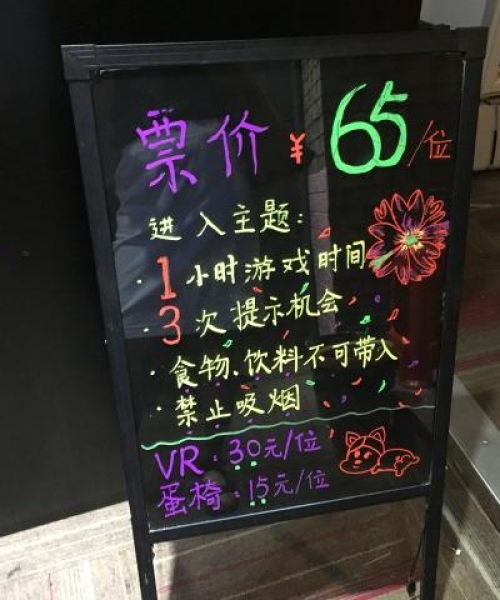 票价 ¥65/位
进入主题:
·1小时游戏时间
·3次提示机会
·食物、饮料不可带入
·禁止吸烟
VR:30元/位
蛋椅:15元/位